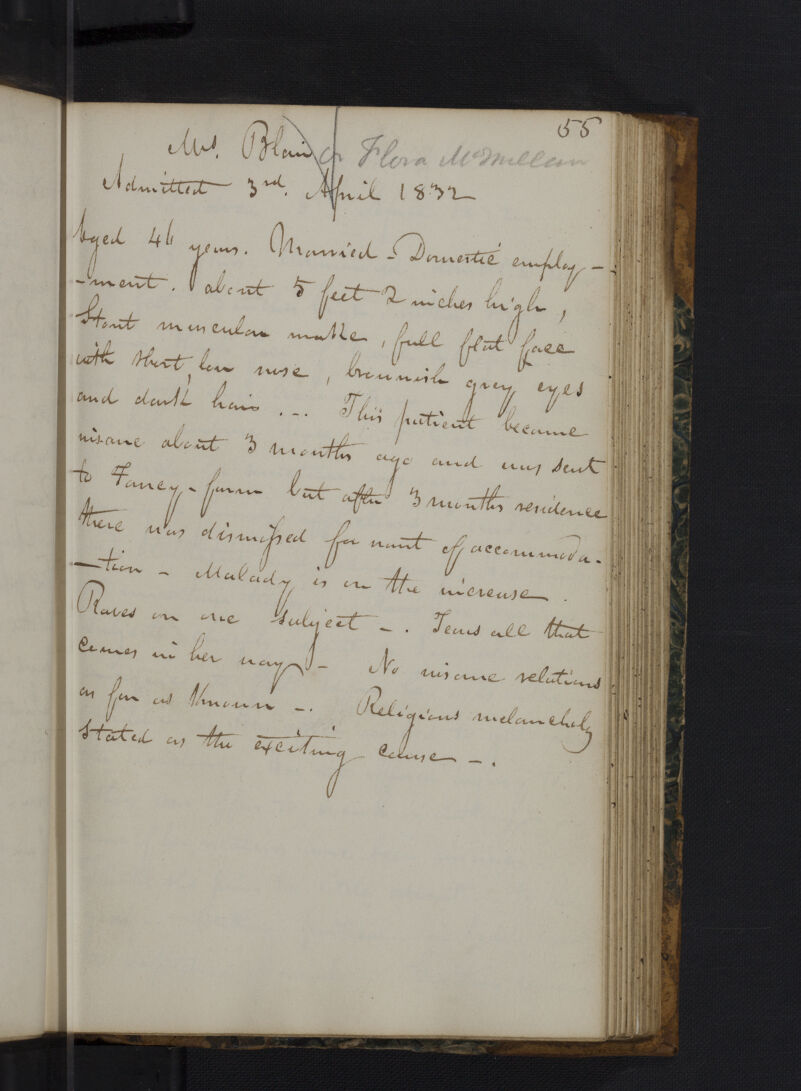 55
Mrs. Blair or Flora McMillan
Admitted 3rd. April 1832
Aged 46 years. Married - Domestic employ-
-ment. about 5 feet 2 inches high,
Stout muscular make, full flat face
with short, low nose, brownish grey eyes
and dark hair. .. This patient became
insane about 3 months ago and was sent
to Taney-farm but after 3 months residence
there was dismissed for want of accommoda-
-tion - Malady is on the increase.
Raves on one subject -. Tears all that
comes in her way - No insane relations
as far as known -. Religious melancholy
stated as the exciting cause -.